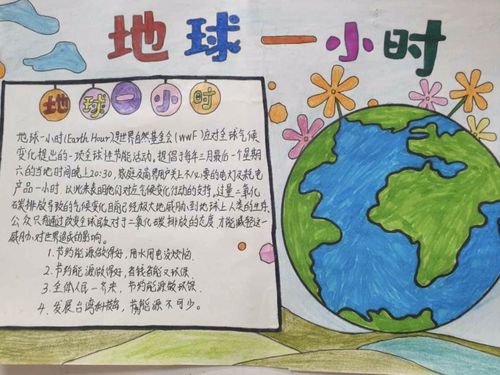 地球一小时
地球一小时
地球一小时(Earth Hour)是世界自然基金会(WWF)应对全球气候
变化提出的一项全球性节能活动,提倡于每年三月最后一个星期
六的当地时间晚上20:30,家庭及商界用户关上不必要的电灯及耗电
产品一小时.以此来表明他们对应气候变化行动的支持,过量二氧化
碳排放导致的气候变化目前已经极大地威胁到地球上人类的生存.
公众只有通过改变全球民众对于二氧化碳排放的态度,才能减轻这一
威胁对世界造成的影响。
1.节约能源做得好,用水用电没烦恼.
2.节约能源做得好,省钱省能又环保.
3.全体人民一齐来,节约能源做环保.
4.发展台湾科技,节能源不可少。